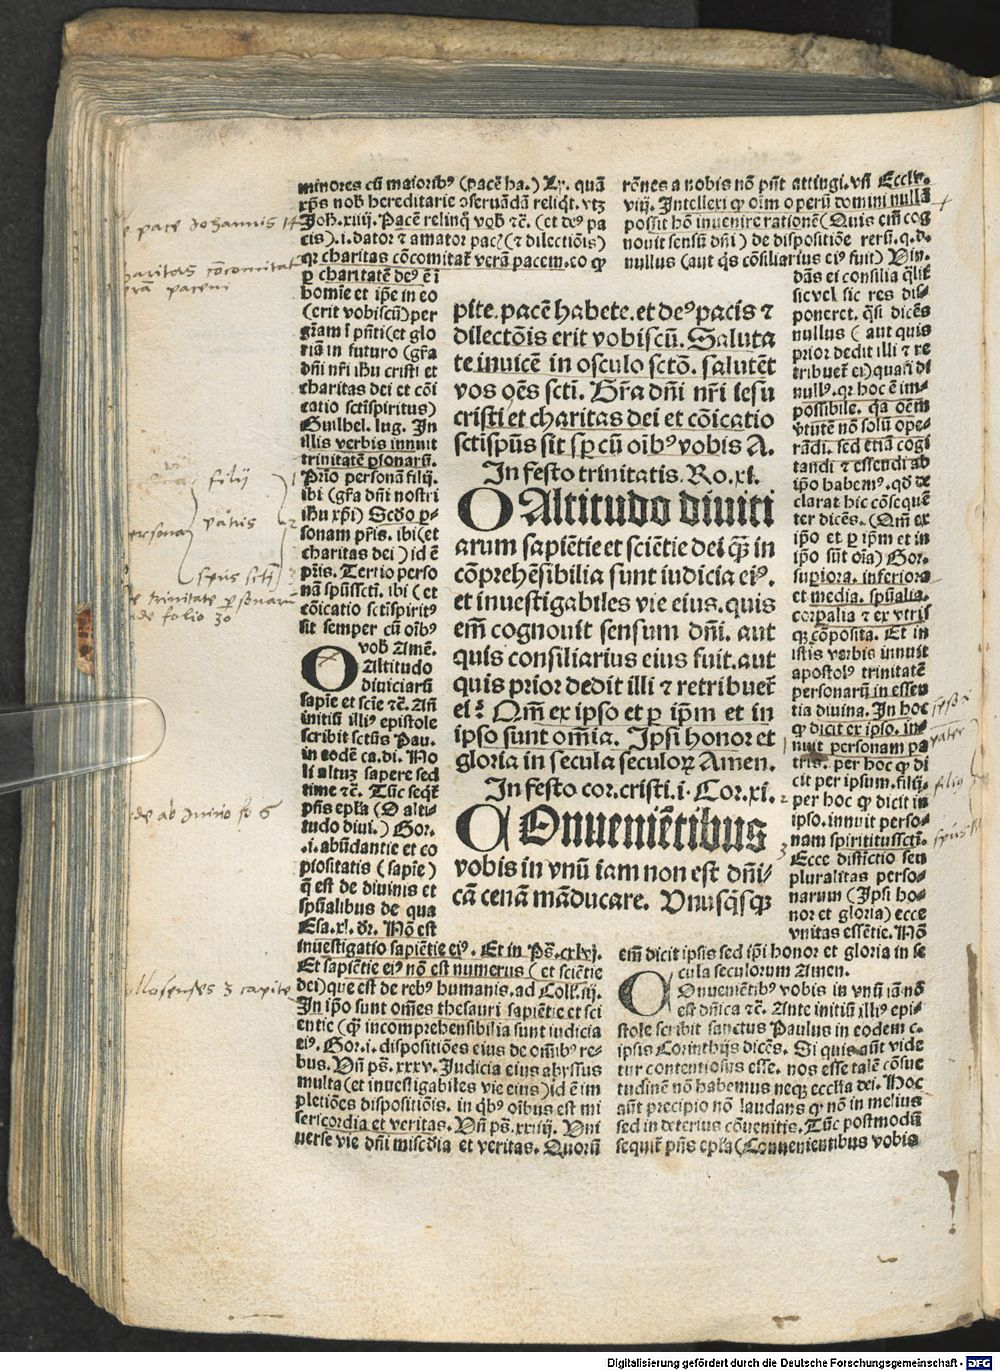 minores cū maioribꝰ (pacē ha.) Xp. quā
xp̄s nob̄ hereditarie ɔseruādā reliq̇t. vtꝫ
Joh. xiiij. Pacē relinq̄ vob̄ ⁊c̄. (et deꝰ pa
cis).i. dator ⁊ amator pac̄ (⁊ dilectiōis)
qꝛ charitas cōcomitat̄ verā pacem. eo ꝙ
ꝑ charitatē deꝰ ē ī
homīe et ip̄e in eo
(erit vobiscū) per
gr̄am ī pn̄ti (et glo
riā in futuro (gr̄a
dn̄i nr̄i ihu cristi et
charitas dei et cōi
catio sctīspiritus)
Guilhel. lug. In
illis verbis innuit
trinitatē ꝑsonarū.
Prīo personā filij.
ibi (gr̄a dn̄i nostri
ihu xp̄i) Scd̄o ꝑ-
sonam pr̄is. ibi (et
charitas dei) id ē
pr̄is. Tertio perso
nā spūssctī. ibi (et
cōicatio sctīspiritꝰ
sit semper cū oībꝰ
vob̄ Amē.
O Altitudo
diuiciarū
sapīe et scīe ⁊c̄. An̄
initiū illiꝰ epistole
scribit sctūs Pau.
in eodē ca. di. No
li altuꝫ sapere sed
time ⁊c̄. Tūc seqt̄
pn̄s epl̄a (O alti-
tudo diui.) Gor.
.i. abūdantie et co
piositatis (sapīe)
q̄ est de diuinis et
spūalibus de qua
Esa. xl. dr̄. Nō est
inuestigatio sapiētie eiꝰ. Et in Ps̄. cxlvj.
Et sapiētie eiꝰ nō est numerus (et sciētie
dei) que est de rebꝰ humanis. ad Coll. iij.
In ip̄o sunt om̄es thesauri sapiētie et sci
entie (q̄ incomprehensibilia sunt iudicia
eiꝰ. Gor.i. dispositiōes eius de om̄ibꝰ re-
bus. Vn̄ ps̄. xxxv. Iudicia eius abyssus
multa (et inuestigabiles vie eius) id ē im
pletiōes dispositiōis. in q̇bꝰ oībus est mi
sericordia et veritas. Vn̄ ps̄. xxiiij. Vni
uerse vie dn̄i mīscd̄ia et veritas. Quorū
pite. pacē habete. et deꝰ pacis ⁊
dilectōis erit vobiscū. Saluta
te inuicē in osculo sctō. salutēt
vos oēs sctī. Gr̄a dn̄i nr̄i iesu
cristi et charitas dei et cōicatio
sctīspūs sit sꝑ cū oībꝰ vobis A.
In festo trinitatis. Ro. xi.
O Altitudo diuiti
arum sapiētie et sciētie dei q̄ in
cōprehēsibilia sunt iudicia eiꝰ.
et inuestigabiles vie eius. quis
em̄ cognouit sensum dn̄i. aut
quis consiliarius eius fuit. aut
quis prior dedit illi ⁊ retribuet̄
ei? Qm̄ ex ipso et ꝑ ip̄m et in
ipso sunt om̄ia. Ipsi honor et
gloria in secula seculoꝝ Amen.
In festo cor. cristi. i. Cor. xi.
COnueniētibus
vobis in vnū iam non est dn̄i-
cā cenā māducare. Vnusq̇sqꝫ
rōnes a nobis nō pn̄t attingi. vn̄ Eccl̄s.
viij. Intellexi ꝙ oīm operū domini nullā
possit hō inuenire rationē (Quis em̄ cog
nouit sensū dn̄i) de dispositiōe rerū. q. d.
nullus (aut q̇s cōsiliarius eiꝰ fuit) Vin.
dās ei consilia q̄lit̄
sic vel sic res dis-
poneret. q̄si dicēs
nullus (aut quis
prior dedit illi ⁊ re
tribuet̄ ei) quasi di
nullꝰ. qꝛ hoc ē im-
possibile. q̄a oēm
v̄tutē nō solū ope-
rādi. sed etiā cogi
tandi ⁊ essendi ab
ip̄o habemꝰ. qd̄ de
clarat hic cōsequē
ter dicēs. (Qm̄ ex
ip̄o et ꝑ ip̄m et in
ip̄o sūt oīa) Gor.
superiora. inferiora
et media. spūalia.
corꝑalia ⁊ ex vtris
qꝫ cōposita. Et in
istis verbis innuit
apostolꝰ trinitatē
personarū in essen
tia diuina. In hoc
ꝙ dicit ex ipso. in-
nuit personam pa
tris. per hoc ꝙ di
cit per ipsum. filij.
per hoc ꝙ dicit in
ipso. innuit perso-
nam spiritussctī.
Ecce distīctio seu
pluralitas perso-
narum (Ipsi ho-
nor et gloria) ecce
vnitas essētie. Nō
em̄ dicit ipsis sed ip̄i honor et gloria in se
cula seculorum Amen.
COnueniētibꝰ vobis in vnū iā nō
est dn̄ica ⁊c̄. Ante initiū illiꝰ epi-
stole scribit sanctus Paulus in eodem c.
ipsis Corinthijs dicēs. Si quis aūt vide
tur contentiosus esse. nos esse talē cōsue
tudinē nō habemus neqꝫ eccl̄ia dei. Hoc
aūt precipio nō laudans ꝙ nō in melius
sed in deterius cōuenitis. Tūc postmodū
sequit̄ pn̄s epl̄a (Conuenientibus vobis
pace Johannis 14
charitas cōcomitat
pacem
filij
persona
patris
spūs sctī
de trinitate personarū
folio 30
fo 6
3 capite
pater
filius
Digitalisierung gefördert durch die Deutsche Forschungsgemeinschaft - DFG